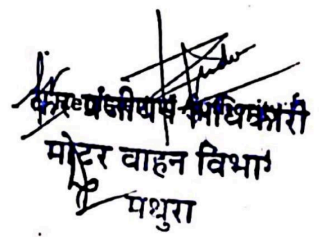 कर पंजीयन अधिकारी
मोटर वाहन विभाग
मथुरा